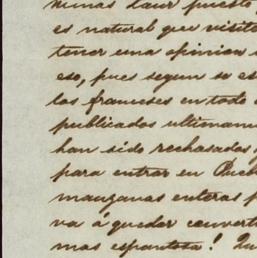 puesto
es natural que visit
tener una opinion
eso, pues segun se es
los franceses en todo
publicados ultimam
han sido rechasados
para entrar en Pueb
manzanas enteras p
va á quedar convert
mas espantosa!